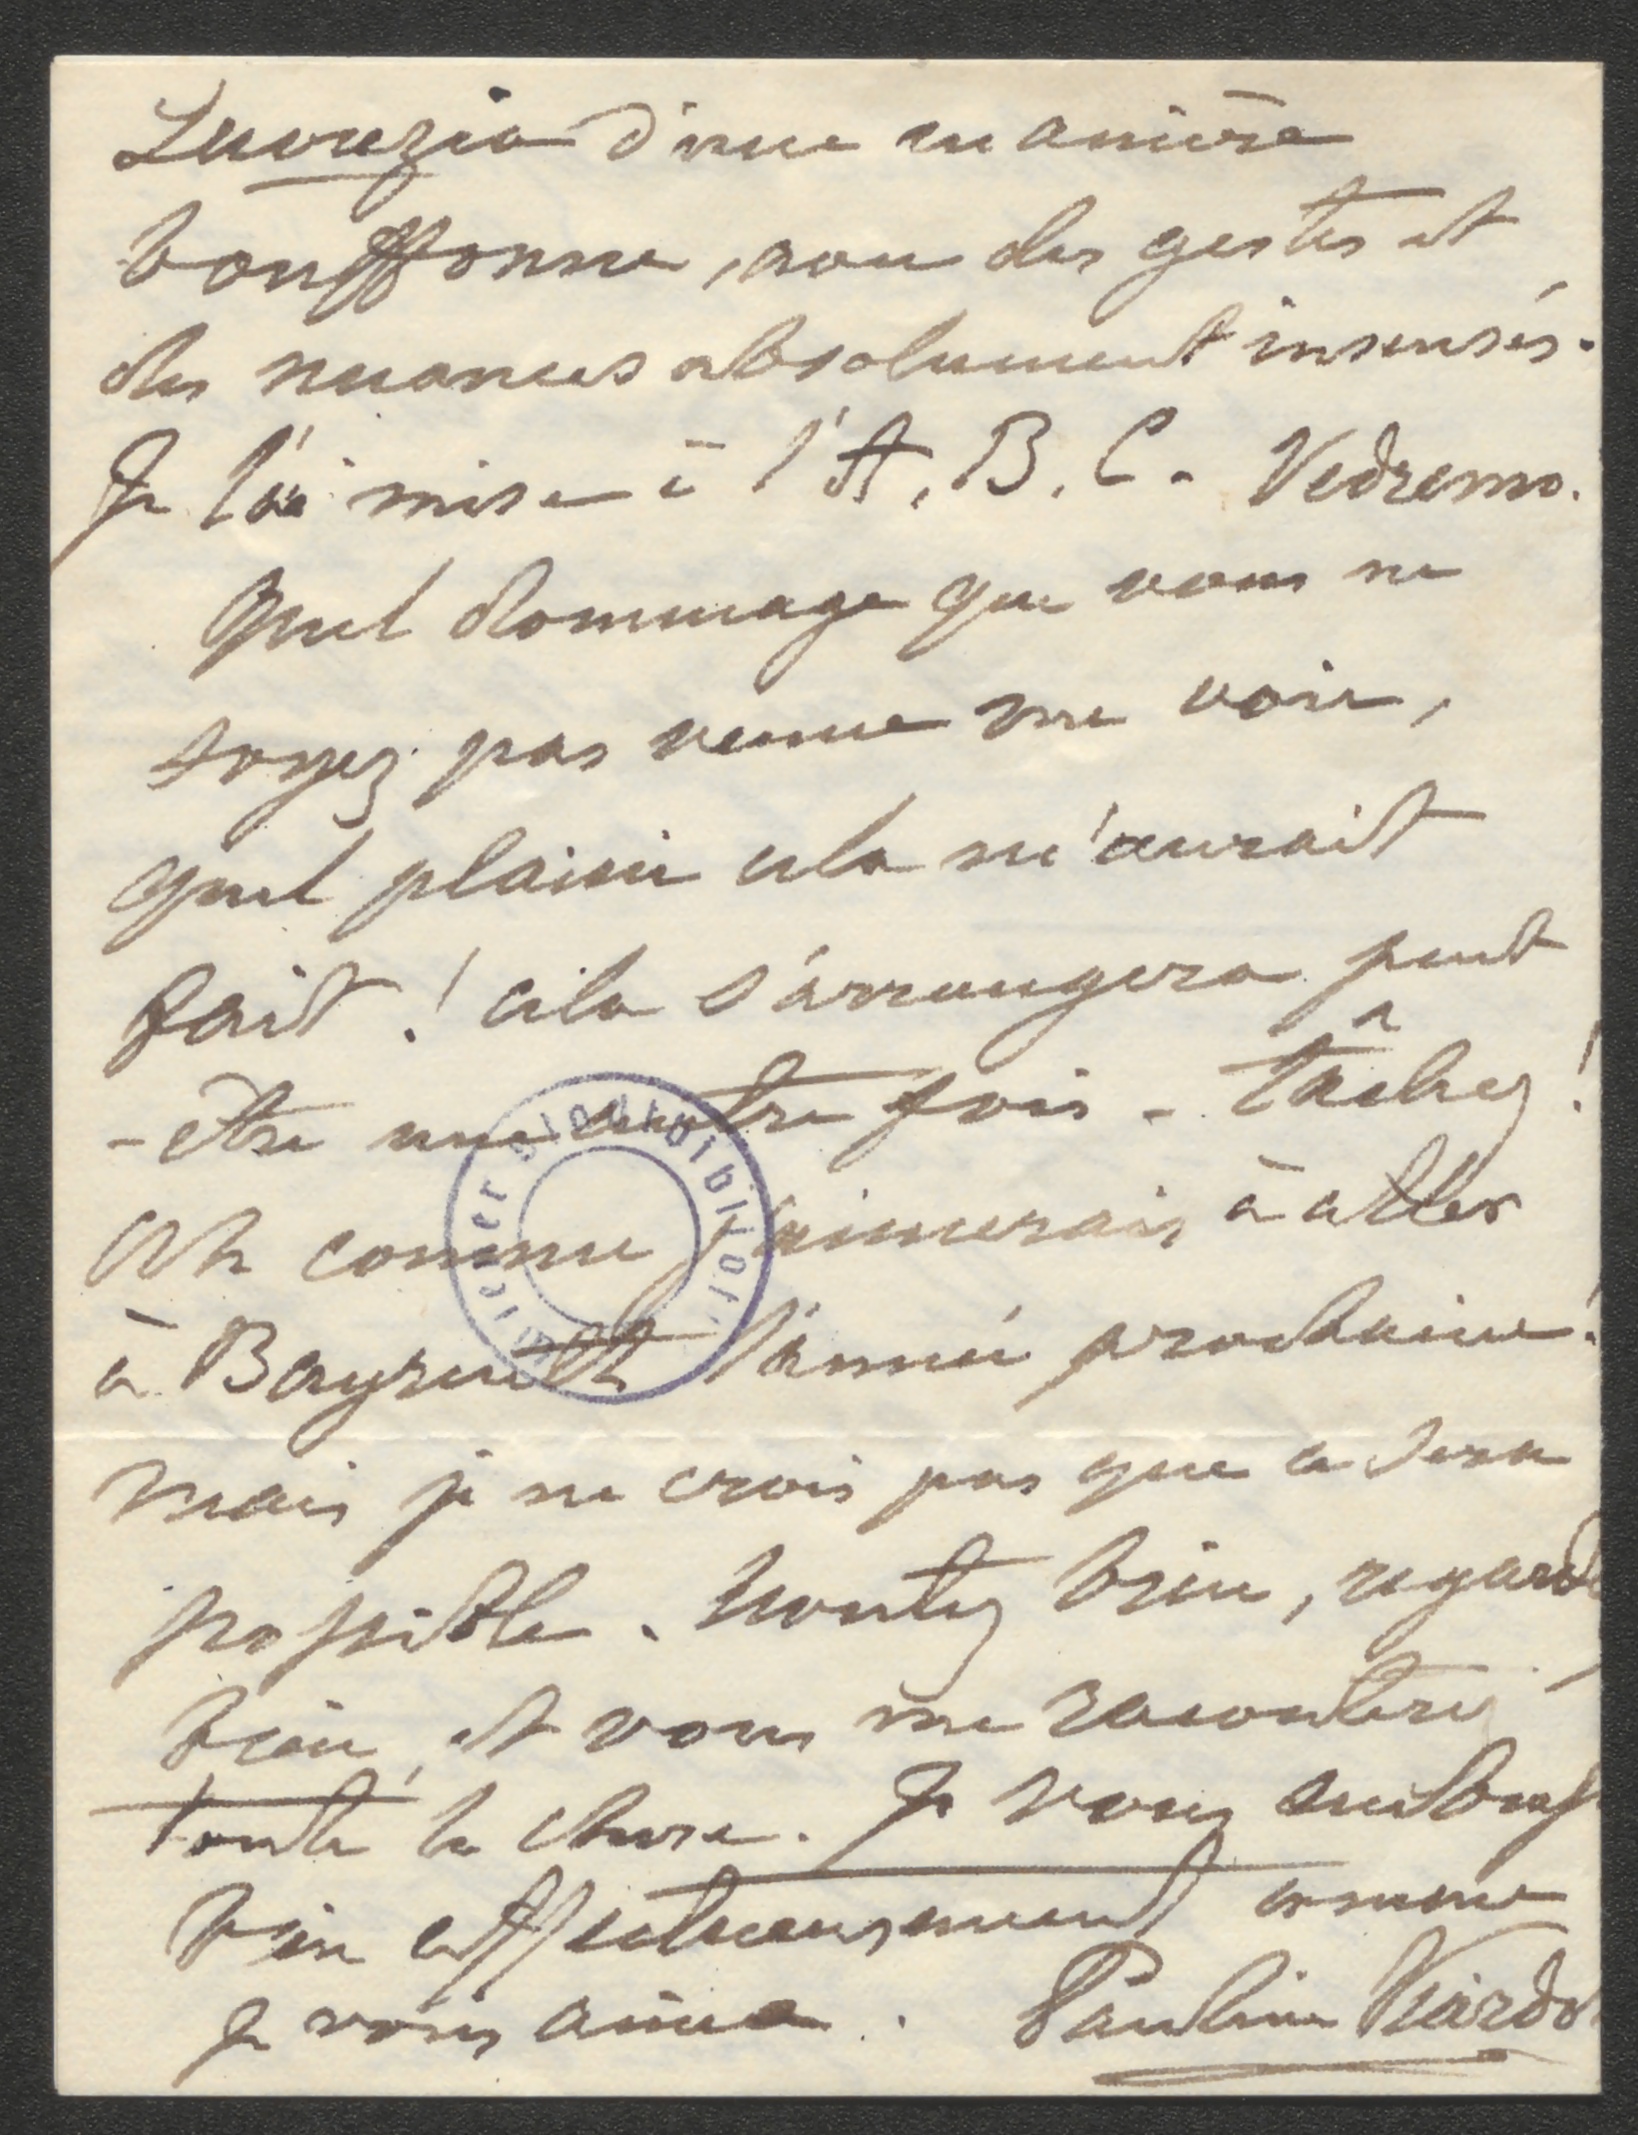 Lucrezia d'une manière
bouffonne, avec des gestes et
des nuances absolument insensés.
Je l'ai mise à l'A. B. C. Vedremo.
Quel dommage que vous ne
soyez pas venue me voir,
quel plaisir cela m'aurait
fait ! cela s'arrangera peut
-être une autre fois - tâchez !
Oh comme j'aimerais à aller
à Bayreuth l'année prochaine !
mais je ne crois pas que ce sera
possible. Ecoutez bien, regardez
bien, et vous me raconterez
toute la chose. Je vous embrasse
bien affectueusement comme
je vous aime. Pauline Viardot
Wiener Stadtbibliothek